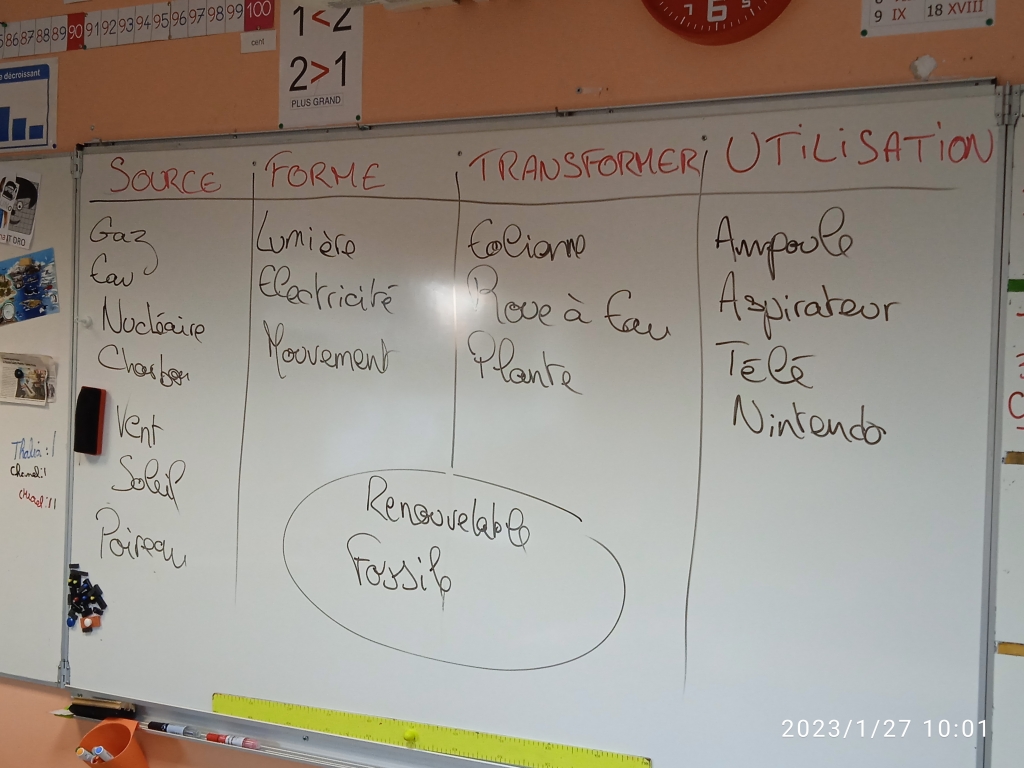 86 87 88 89 90 91 92 93 94 95 96 97 98 99 100
cent
1<2
2>1
PLUS GRAND
6
9 IX 18 XVIII
décroissant
SOURCE FORME TRANSFORMER UTILISATION
Gaz
Eau
Nucléaire
Charbon
Vent
Soleil
Poireau
Lumière
Electricité
Mouvement
Eolienne
Roue à Eau
Plante
Ampoule
Aspirateur
Télé
Nintendo
Renouvelable
Fossile
2023/1/27 10:01